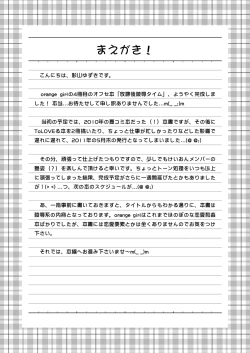 まえがき！
こんにちは、影山ゆずきです。
orange girlの4冊目のオフセ本「放課後閣等タイム」、ようやく完成しま
した！ 本当…お待たせして申し訳ありませんでした…m(_ _)m
当初の予定では、2010年の夏コミ本だった（！）本書ですが、その後に
ToLOVE系本を2冊描いたり、ちょっと仕事が忙しかったりなどした影響で
遅れに遅れて、2011年の5月末の発行となってしまいました…(@ @;)
その分、頑張って仕上げたつもりですので、少しでもけいおんメンバーの
ちょっとトーン処理をいつも以上
に頑張ってしまった結果、完成予定がさらに一週間延びたとかもありました
が！(> <) …つ、次の本のスケジュールが…(@ @;)
あ、一番事前に書いておきますと、タイトルからもわかる通りに、本書は
系の内容となっております。orange girlはこれまでほのぼのな
本でしたが、本書には恋愛要素とかは全くありませんのでお気をつけ
下さい。
それでは、本編へお進み下さいませ〜m(_ _)m